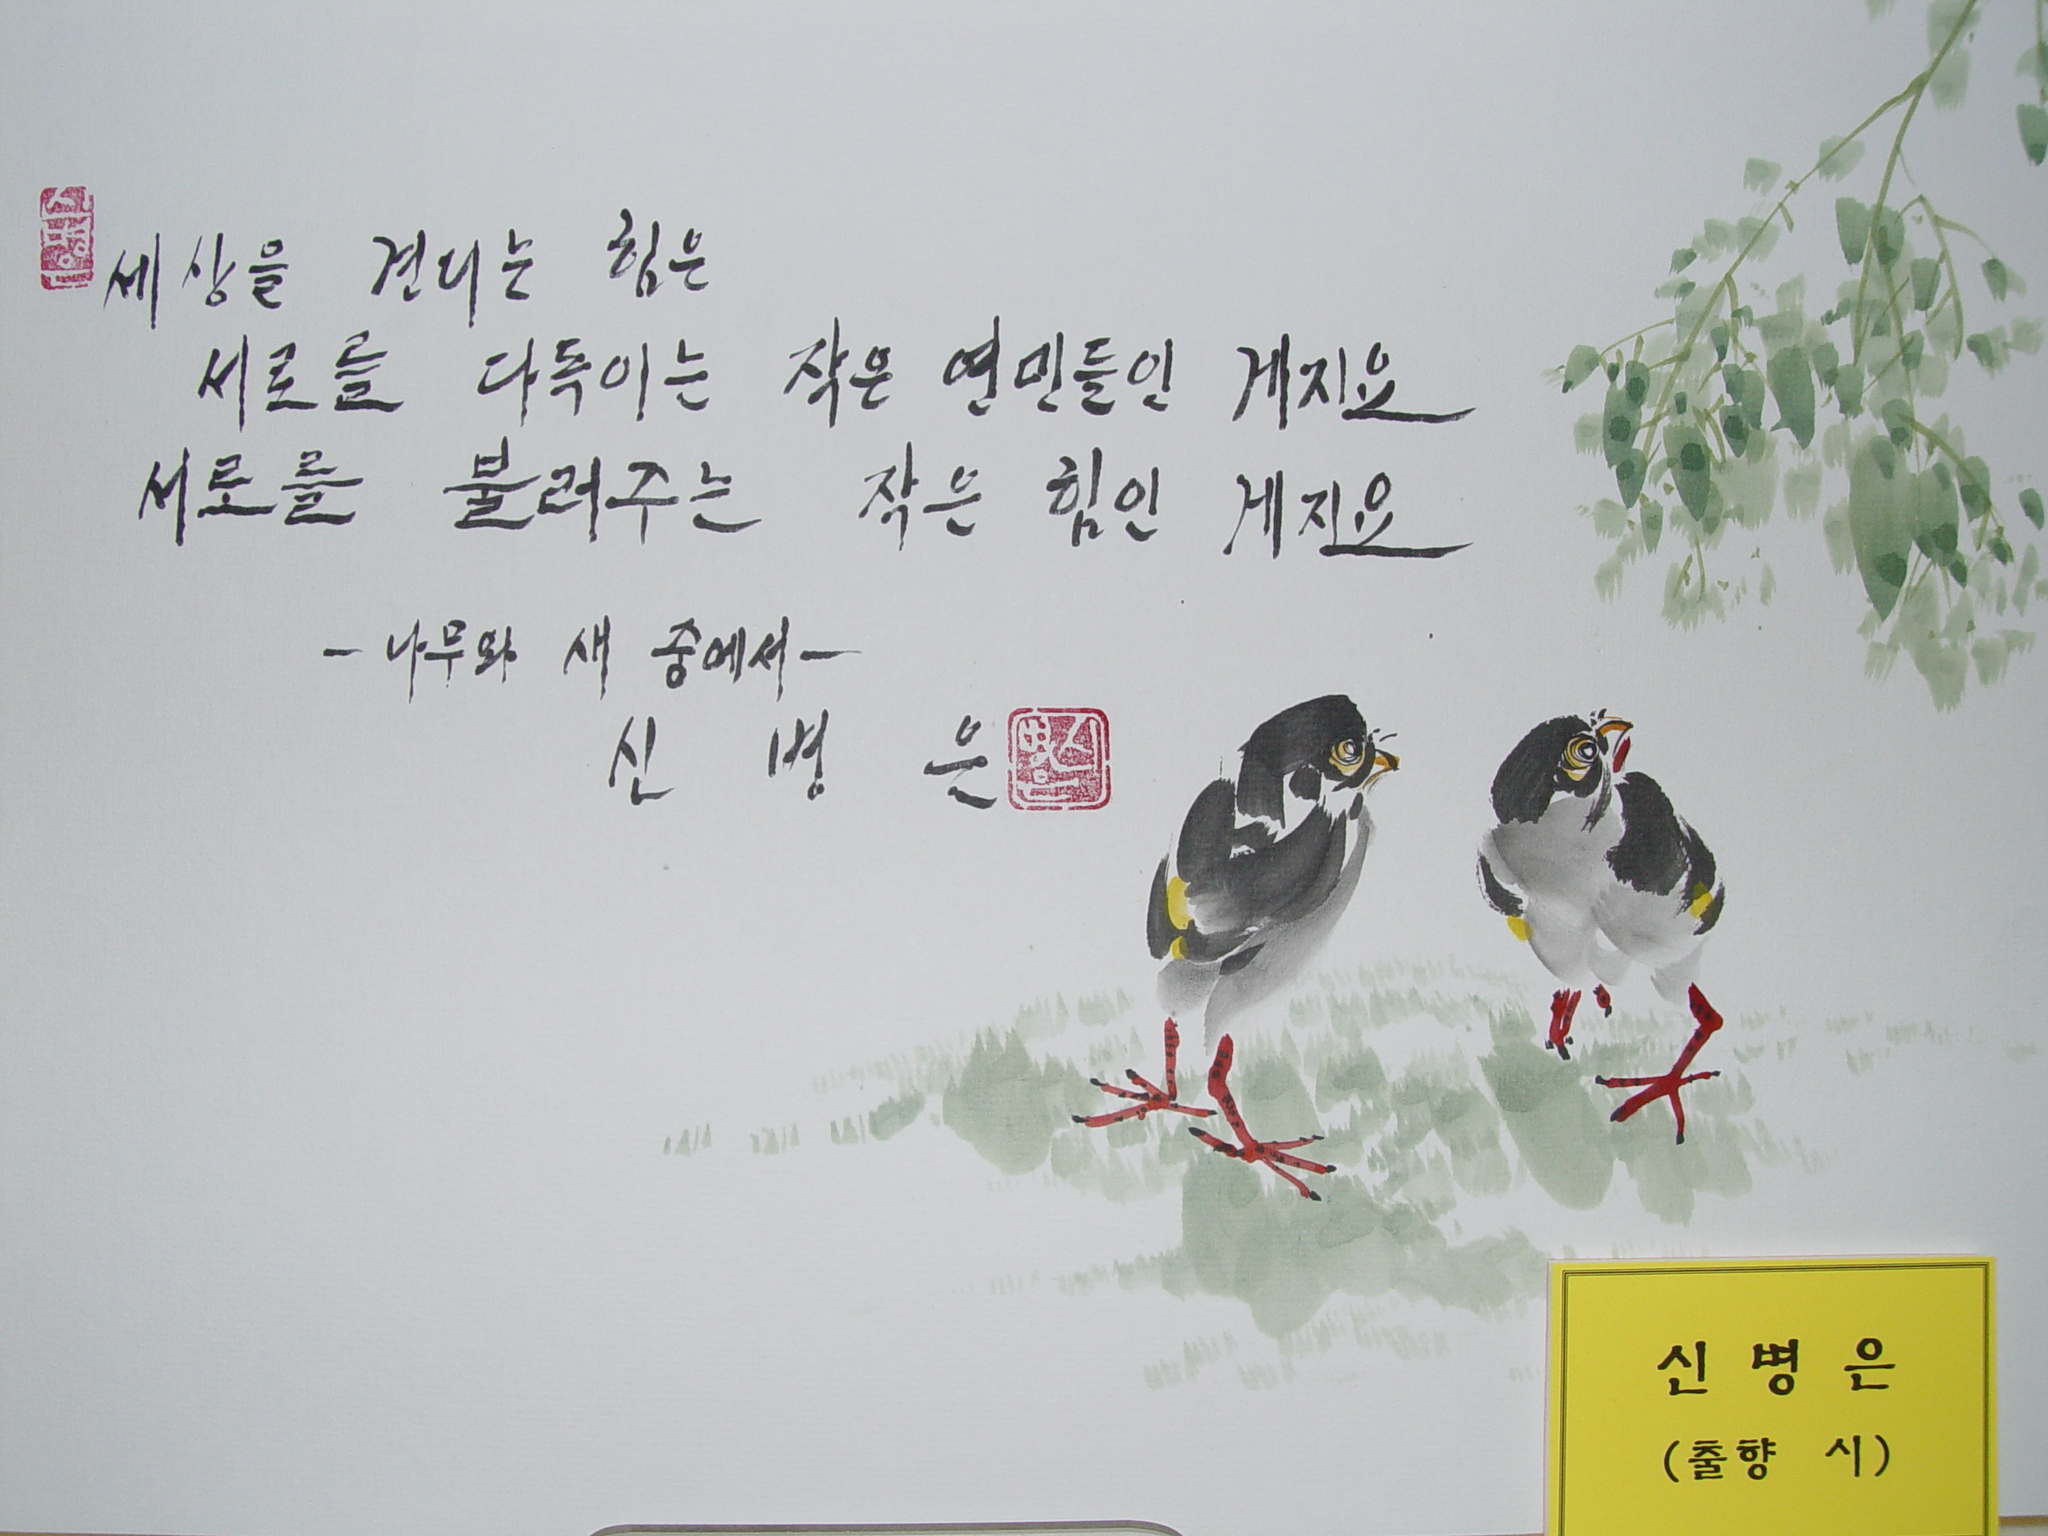 세상을 견디는 힘은
서로를 다독이는 작은 연민들인 게지요
서로를 불러주는 작은 힘인 게지요
-나무와 새 중에서-
신 병 은
신병은
(출향 시)